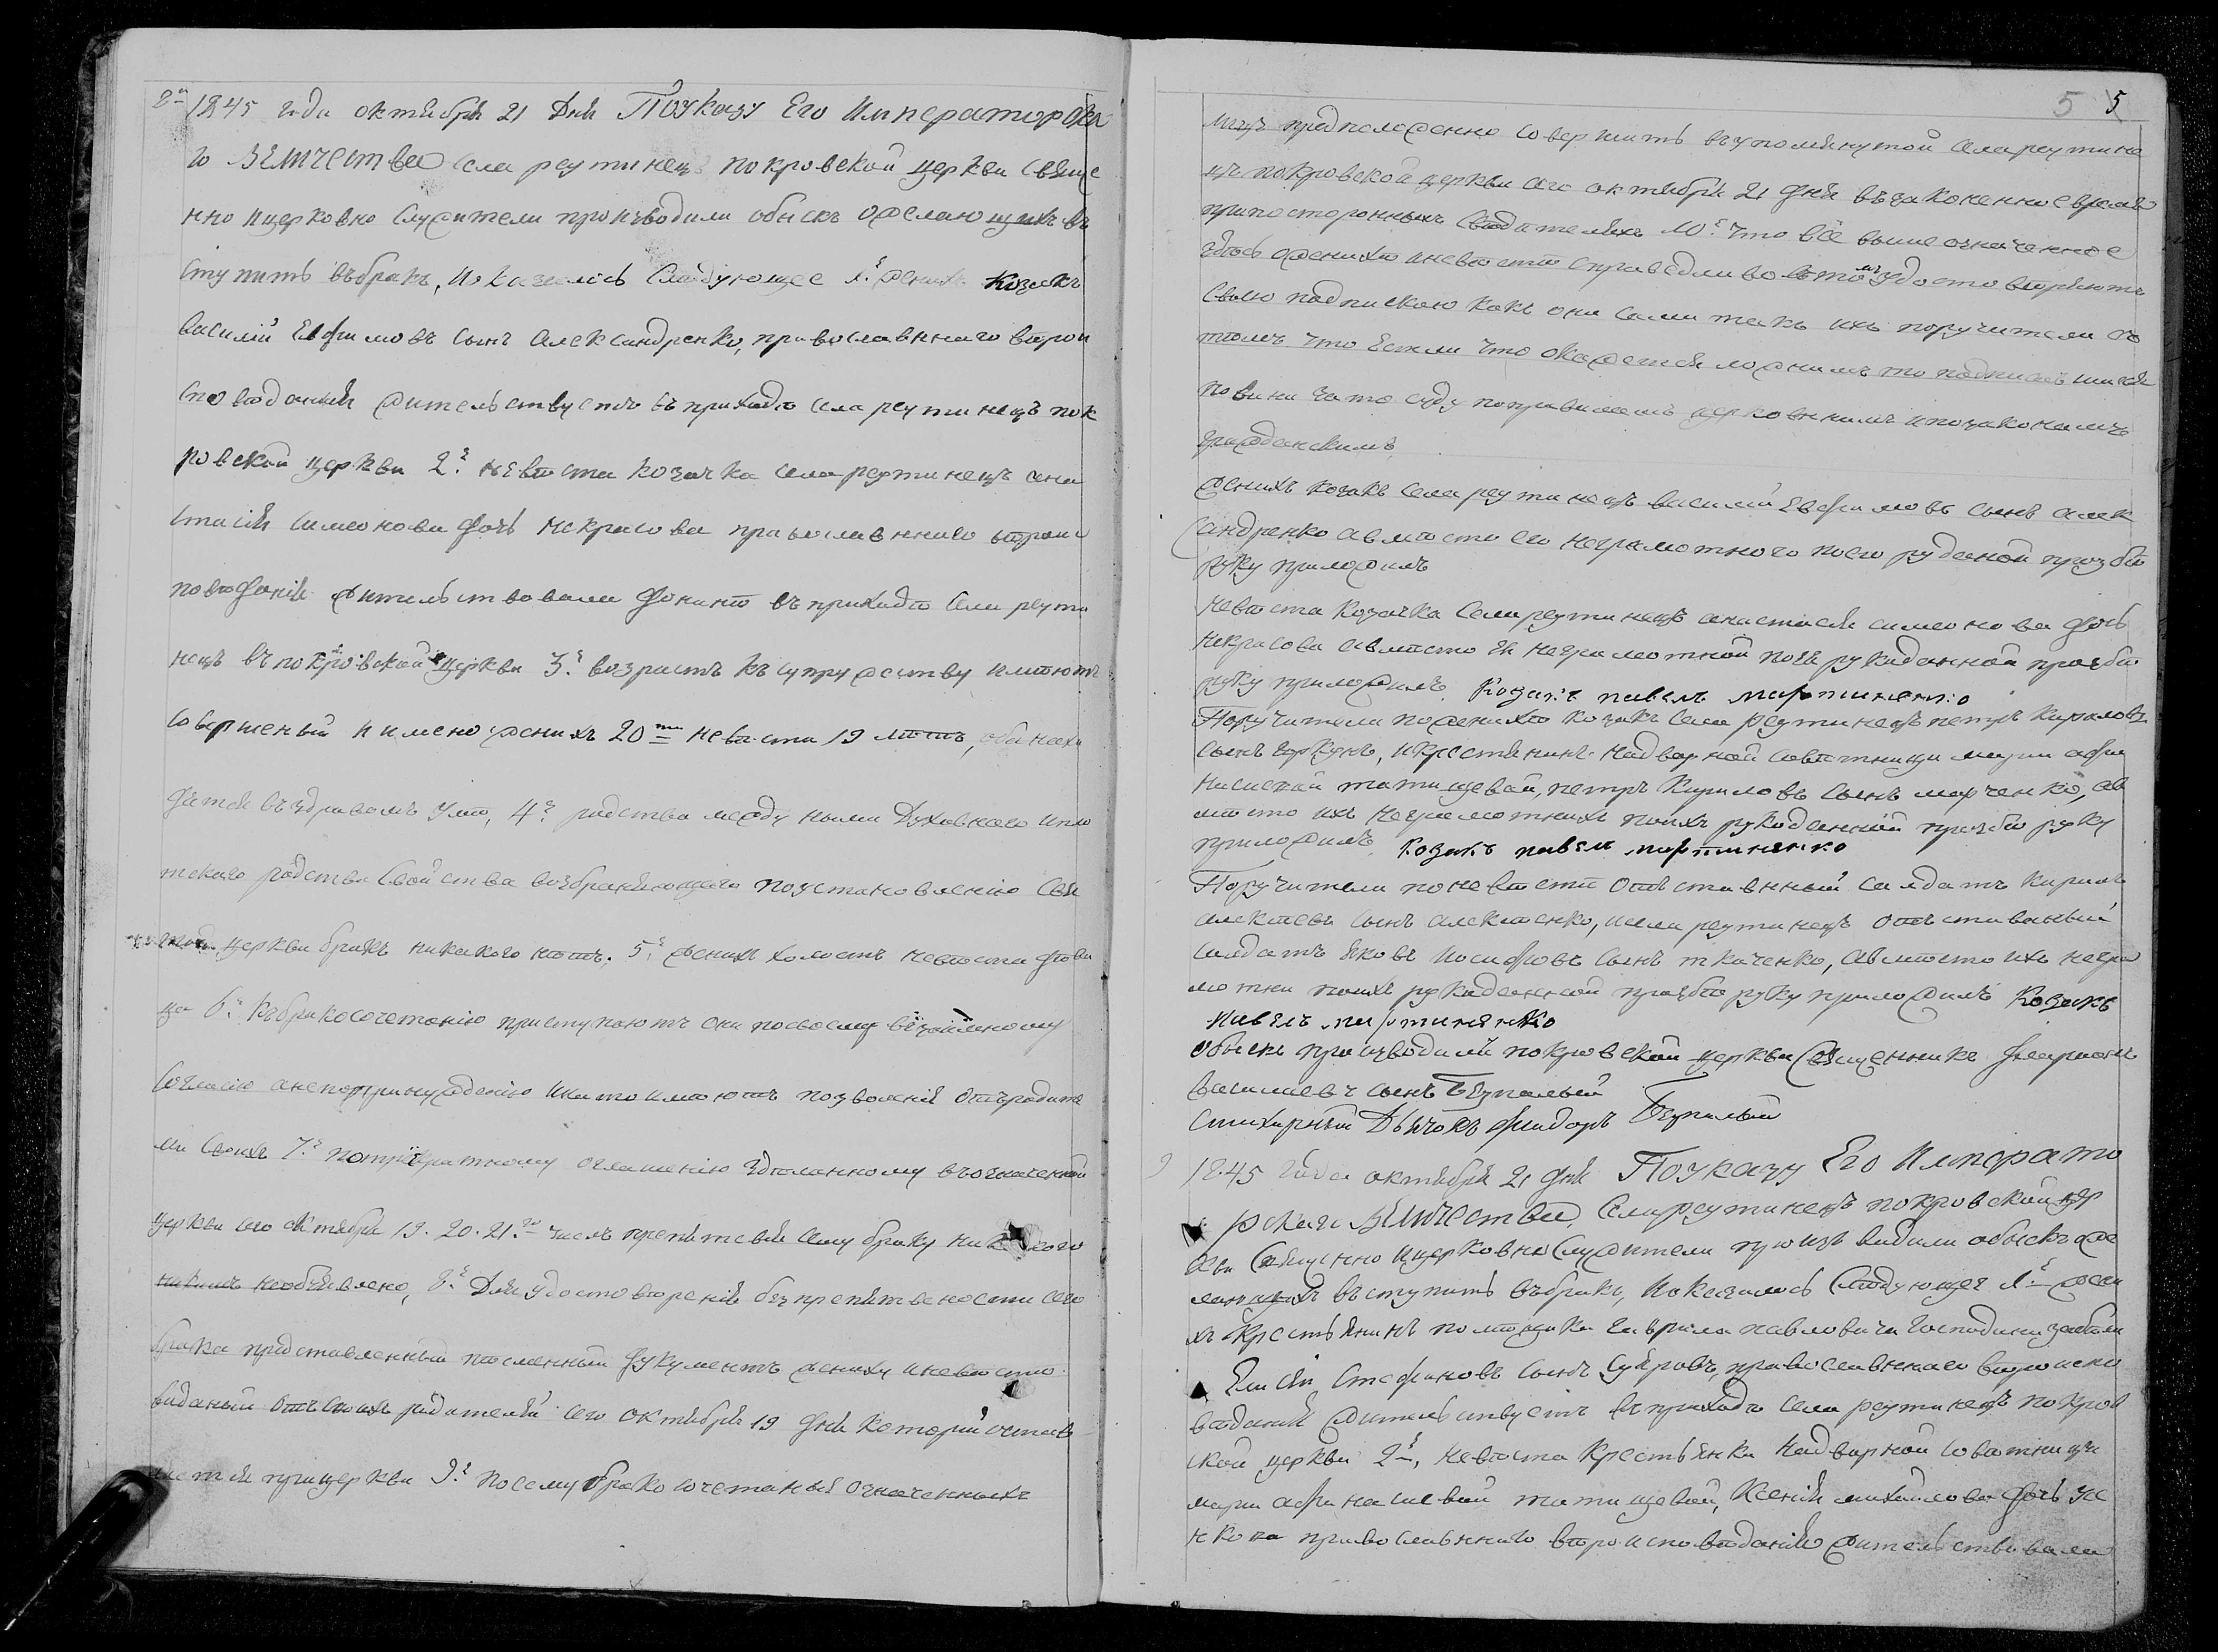 2й 1845 года октября 21 дня Поуказу Его Императорска
го Величества села реутинец покровской церкви свяще
нно ицерковно служители произъводили обыскъ ожелающихъ въ
ступить въбракъ, иоказалось следующее 1е женихъ козакъ
василий Евфимовъ сынъ Александренко, православнаго вѣрои
сповѣданія жительствуетъ въприходѣ села реутинецъ пок
ровской церкви 2е невѣста козачка села реутинецъ ана
стасія симеонова дочь некрасова православннаго вѣроис
повѣданія жительствовала донинѣ въприходѣ села реути
нецъ въпокровской церкви 3е возрастъ къ супружеству имѣютъ
совершеный иимено женихъ 20ти невѣста 19 лѣтъ, оба нахо
дятся въздравомъ умѣ, 4е родства между ными духовнаго ипло
тскаго родства свойства возбраняющаго поустановленію свя
той церкви бракъ никакого нѣтъ. 5е женихъ холостъ невѣста дѣви
ца 6е къбракосочетанію приступаютъ они посвоему взаимному
согласію анепопринужденію инато имѣютъ позволенія отъродите
ли своихъ 7е потроекратному оглашенію зделанному въозначенной
церкви сего октября 19. 20. 21го числъ препятствія сему браку никакого
никимъ необъявлено, 8е Для удостовѣренія безпрепятвености сего
брака представленный писменный документъ жениху иневѣсте
виданый отъ своихъ родителей сего октября 19 дня который остав
ляется прицеркви 9е посему бракосочетанія означенныхъ
5 5
лицъ предположенно совершить въупомянутой села реутине
цъ покровской церкви сего октября 21 дня възаконенное время
припосторонныхъ свидѣтеляхъ 10е что всё выше означенное
здѣсь ожениху иневѣстѣ справедливо вътомъ удостовѣряютъ
своею подпискою какъ они сами такъ ихъ поручители съ
тѣмъ что Естли что окажется ложнимъ то подписавшиися
повини зато суду поправиламъ церковнимъ ипозаконамъ
гражданскимъ
женихъ козакъ села реутинецъ василий Евфимовъ сынъ алек
сандренко авмѣсто его неграмотного поего руданой прозбѣ
руку приложилъ
невѣста козачка села реутинецъ анастасія симеонова дочь
некрасова авмѣсто Ея неграмотной поея рукаданной прозбѣ
руку приложилъ козакъ павелъ мартиненко
Поручители поженихѣ козакъ села реутинецъ петръ кириловъ
сынъ коркунъ, икрестянинъ надворной совѣтници марии афа
насиевой татищевой, петръ кириловъ сынъ марченко, ав
мѣсто ихъ неграмотнихъ поихъ рукоданной прозбѣ руку
приложилъ козакъ павелъ мартиненко
Поручители поневѣстѣ отъставнный салдатъ кирилъ
алексѣевъ сынъ алексѣенко, исела реутинецъ отъставный
салдатъ яковъ иосифовъ сынъ ткаченко, авмѣсто ихъ негра
мотни поихъ рукаданной прозбѣ руку приложилъ козакъ
павелъ мартиненко
обыскъ производили покровской церкви священникъ иларионъ
василиевъ сынъ Безпалый
стихирный Дьячокъ федоръ Безпалый
1845 года октября 21 дня Поуказу Его Императо
рскаго Величества, села реутинецъ покровской цер
кви священно ицерковно служители произъ водили обыскъ оже
лающихъ въступить въбракъ, иоказалось следующее 1е жени
хъ крестьянинъ помѣщика гаврила павловича господина забѣли
Елисей стефановъ сынъ суяровъ, православннаго вѣроиспо
вѣданія жительствуетъ въприходѣ села реутинецъ покров
ской церкви 2е, невѣста крестьянка надворной совѣтници
марии афанасиевой татищевой, Ксенія михайлова дочь ус
нкова православннаго вѣроисповѣданія жительствовала